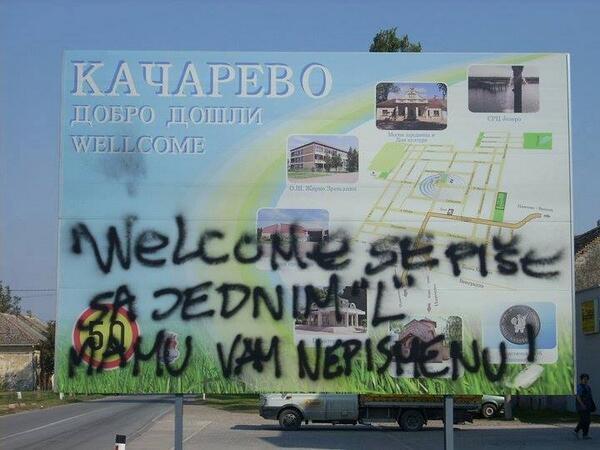 КАЧАРЕВО
ДОБРО ДОШЛИ
WELLCOME
Месна заједница и
Дом културе
СРЦ Језеро
О.Ш. Жарко Зрењанин
WELCOME SE PIŠE
SA JEDNIM "L"
50
MAMU VAM NEPISMENU!